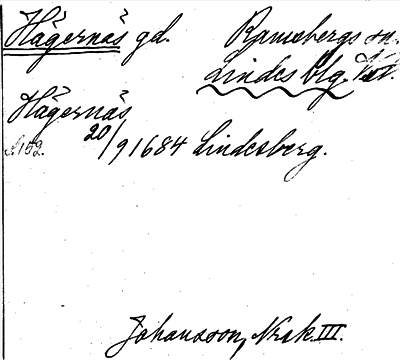 Hägernäs gd. Ramsbergs sn.
Lindes blg. Väst.
Hägernäs
S. 152. 20/9 1684 Lindesberg.
Johansson, Nrsk. III.